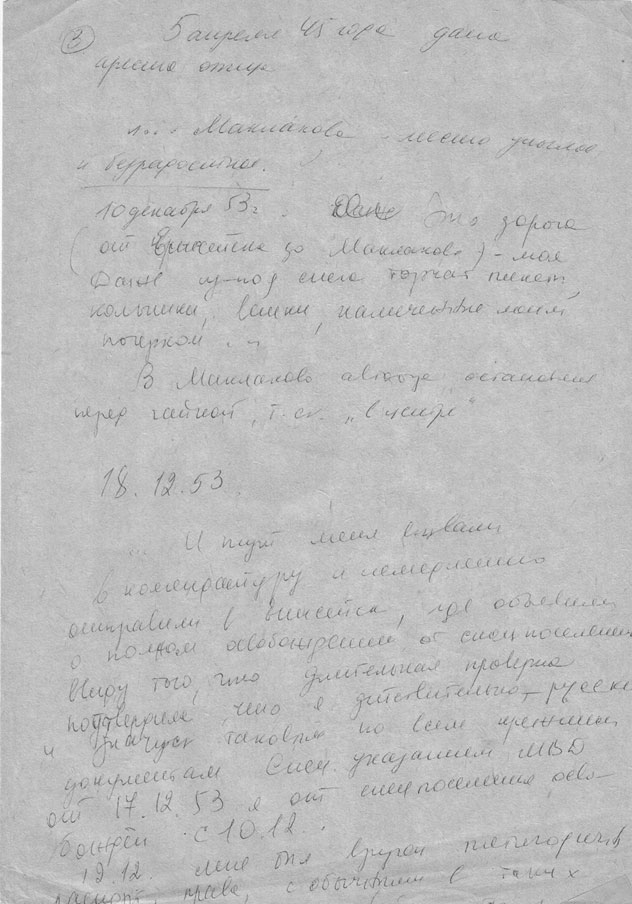 3
5 апреля 45 года дана
... Маклаково - место унылое
и безрадостное.
10 декабря 53 г. Это дорога
(от Енисейска до Маклаково) - моя
Даже из-под снега торчат пикеты,
колышки, вешки, помеченные моим
почерком ...
В Маклаково автобус остановился
перед чайной, т. ск. „в центре"
18.12.53.
... И тут меня вызвали
в комендатуру и немедленно
отправили в Енисейск, где объявили
о полном освобождении от спецпоселения
Ввиду того, что длительная проверка
подтвердила, что я действительно - русский
и значусь таковым по всем прежним
документам Спец. указанием МВД
от 17.12.53 я от спецпоселения осво-
бождён с 10.12.
19.12. мне был вручен
паспорт, права, с обычными в таких